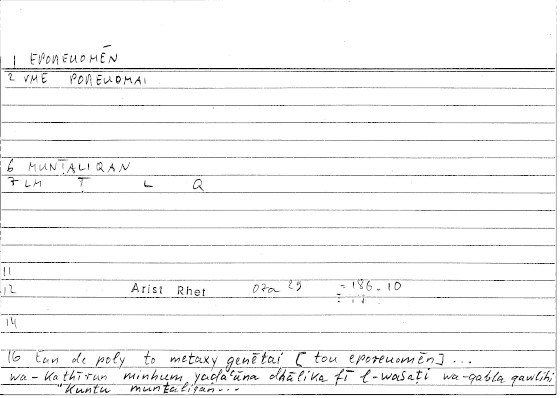 1 EPOREUOMĒN
2 VME POREUOMAI
6 MUNṬALIQAN
7 LM Ṭ L Q
11
12 Arist Rhet 07a 25 = 186.10
14
16 Ean de poly to metaxy genētai [ tou eporeuomēn] ...
wa-Kathīrun minhum yaḍaʿūna dhālika fī l-wasaṭi wa-qabla qawlihi
"Kuntu munṭaliqan...